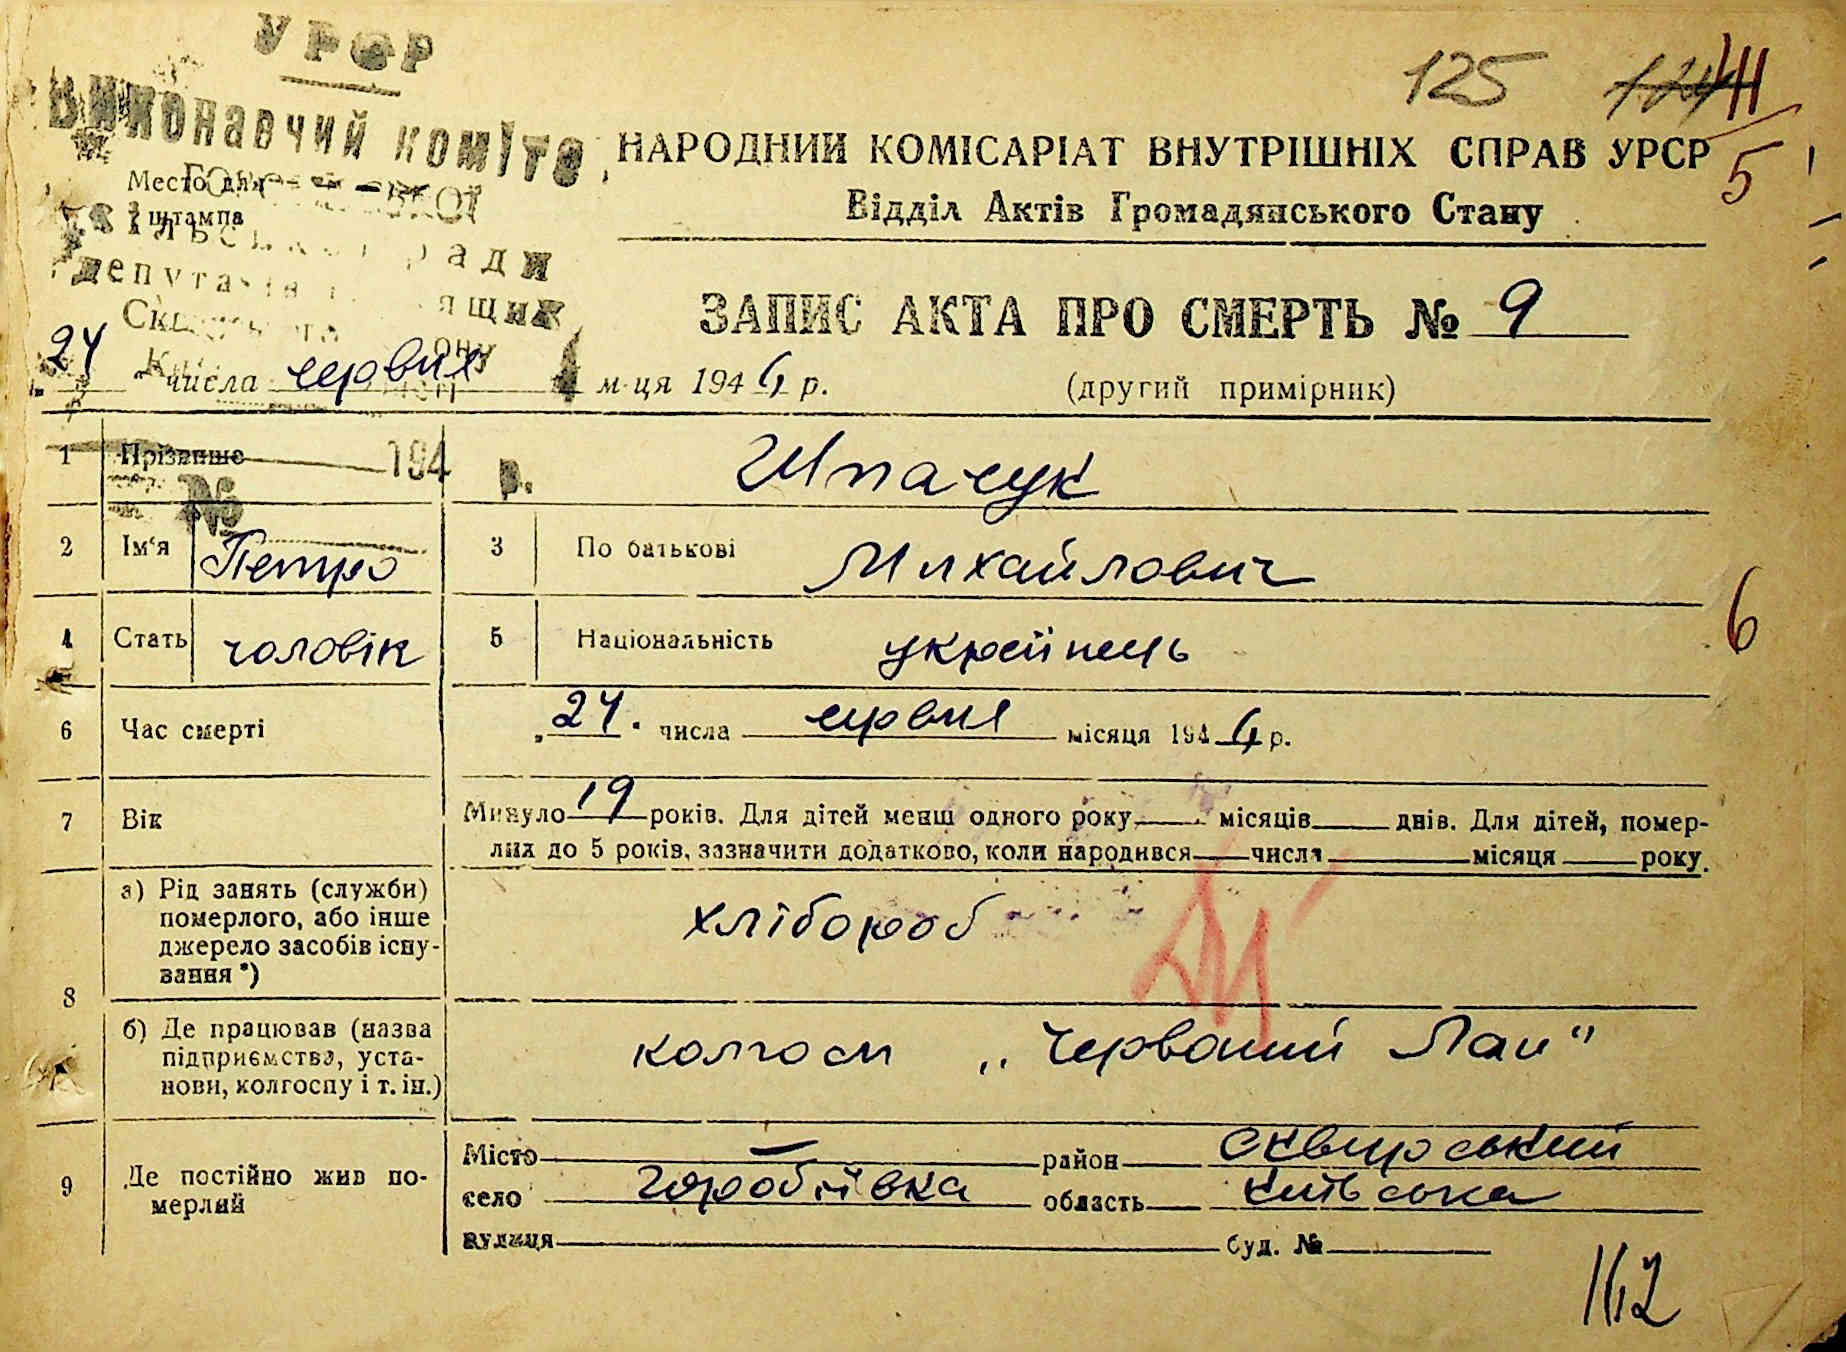 УРСР
Виконавчий коміте
125 124 111
5
НАРОДНИЙ КОМІСАРІАТ ВНУТРІШНІХ СПРАВ УРСР
Відділ Актів Громадянського Стану
Место для
штампа
ради
депутатів
ЗАПИС АКТА ПРО СМЕРТЬ № 9
24 числа червня м-ця 1944 р.
(другий примірник)
1 Прізвище Шпачук
194 р.
№
2 Ім'я Петро 3 По батькові Михайлович
4 Стать чоловік 5 Національність українець
6
6 Час смерті „24. числа червня місяця 1944 р.
7 Вік Минуло 19 років. Для дітей менш одного року місяців днів. Для дітей, помер-
лих до 5 років, зазначити додатково, коли народився числа місяця року.
8 а) Рід занять (служби)
померлого, або інше
джерело засобів існу-
вання *)
хлібороб
б) Де працював (назва
підприємства, уста-
нови, колгоспу і т. ін.)
колгосп „Червоний Лан"
9 Де постійно жив по-
мерлий
Місто — район сквирський
село горобіївка область київська
вулиця буд. №
162